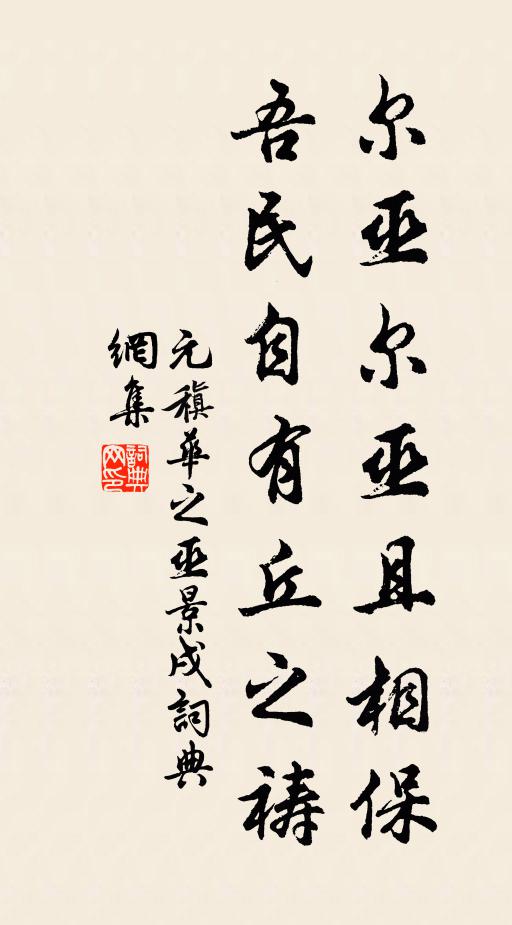 尔巫尔巫且相保
吾民自有丘之祷
元稹華之巫景戌詞典
網集
詞典
网印